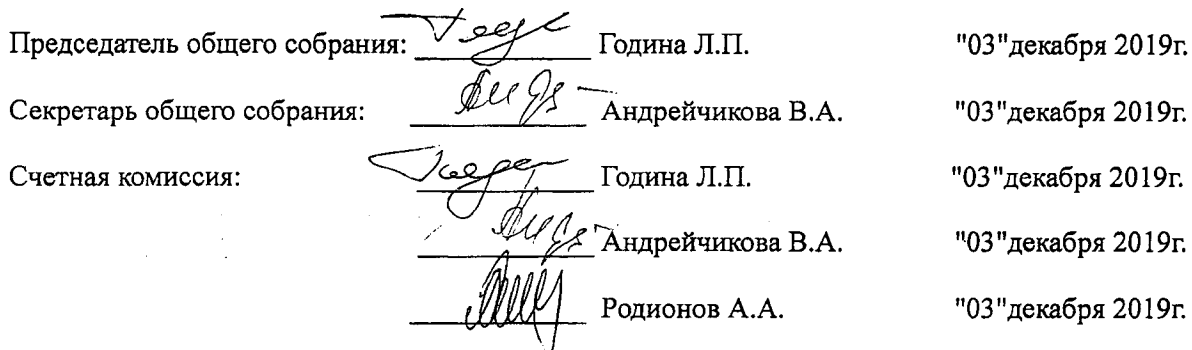 Председатель общего собрания: Година Л.П. "03"декабря 2019г.
Секретарь общего собрания: Андрейчикова В.А. "03"декабря 2019г.
Счетная комиссия: Година Л.П. "03"декабря 2019г.
Андрейчикова В.А. "03"декабря 2019г.
Родионов А.А. "03"декабря 2019г.